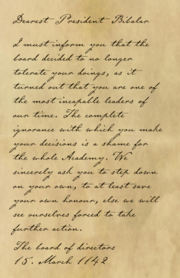 Dearest President Bibalar
I must inform you that the
board decided to no longer
tolerate your doings, as it
turned out that you are one of
the most incapable leaders of
our time. The complete
ignorance with which you make
your decisions is a shame for
the whole Academy. We
sincerely ask you to step down
on your own, to at least save
your own honour, else we will
see ourselves forced to take
further action.
The board of directors
15. March 1142